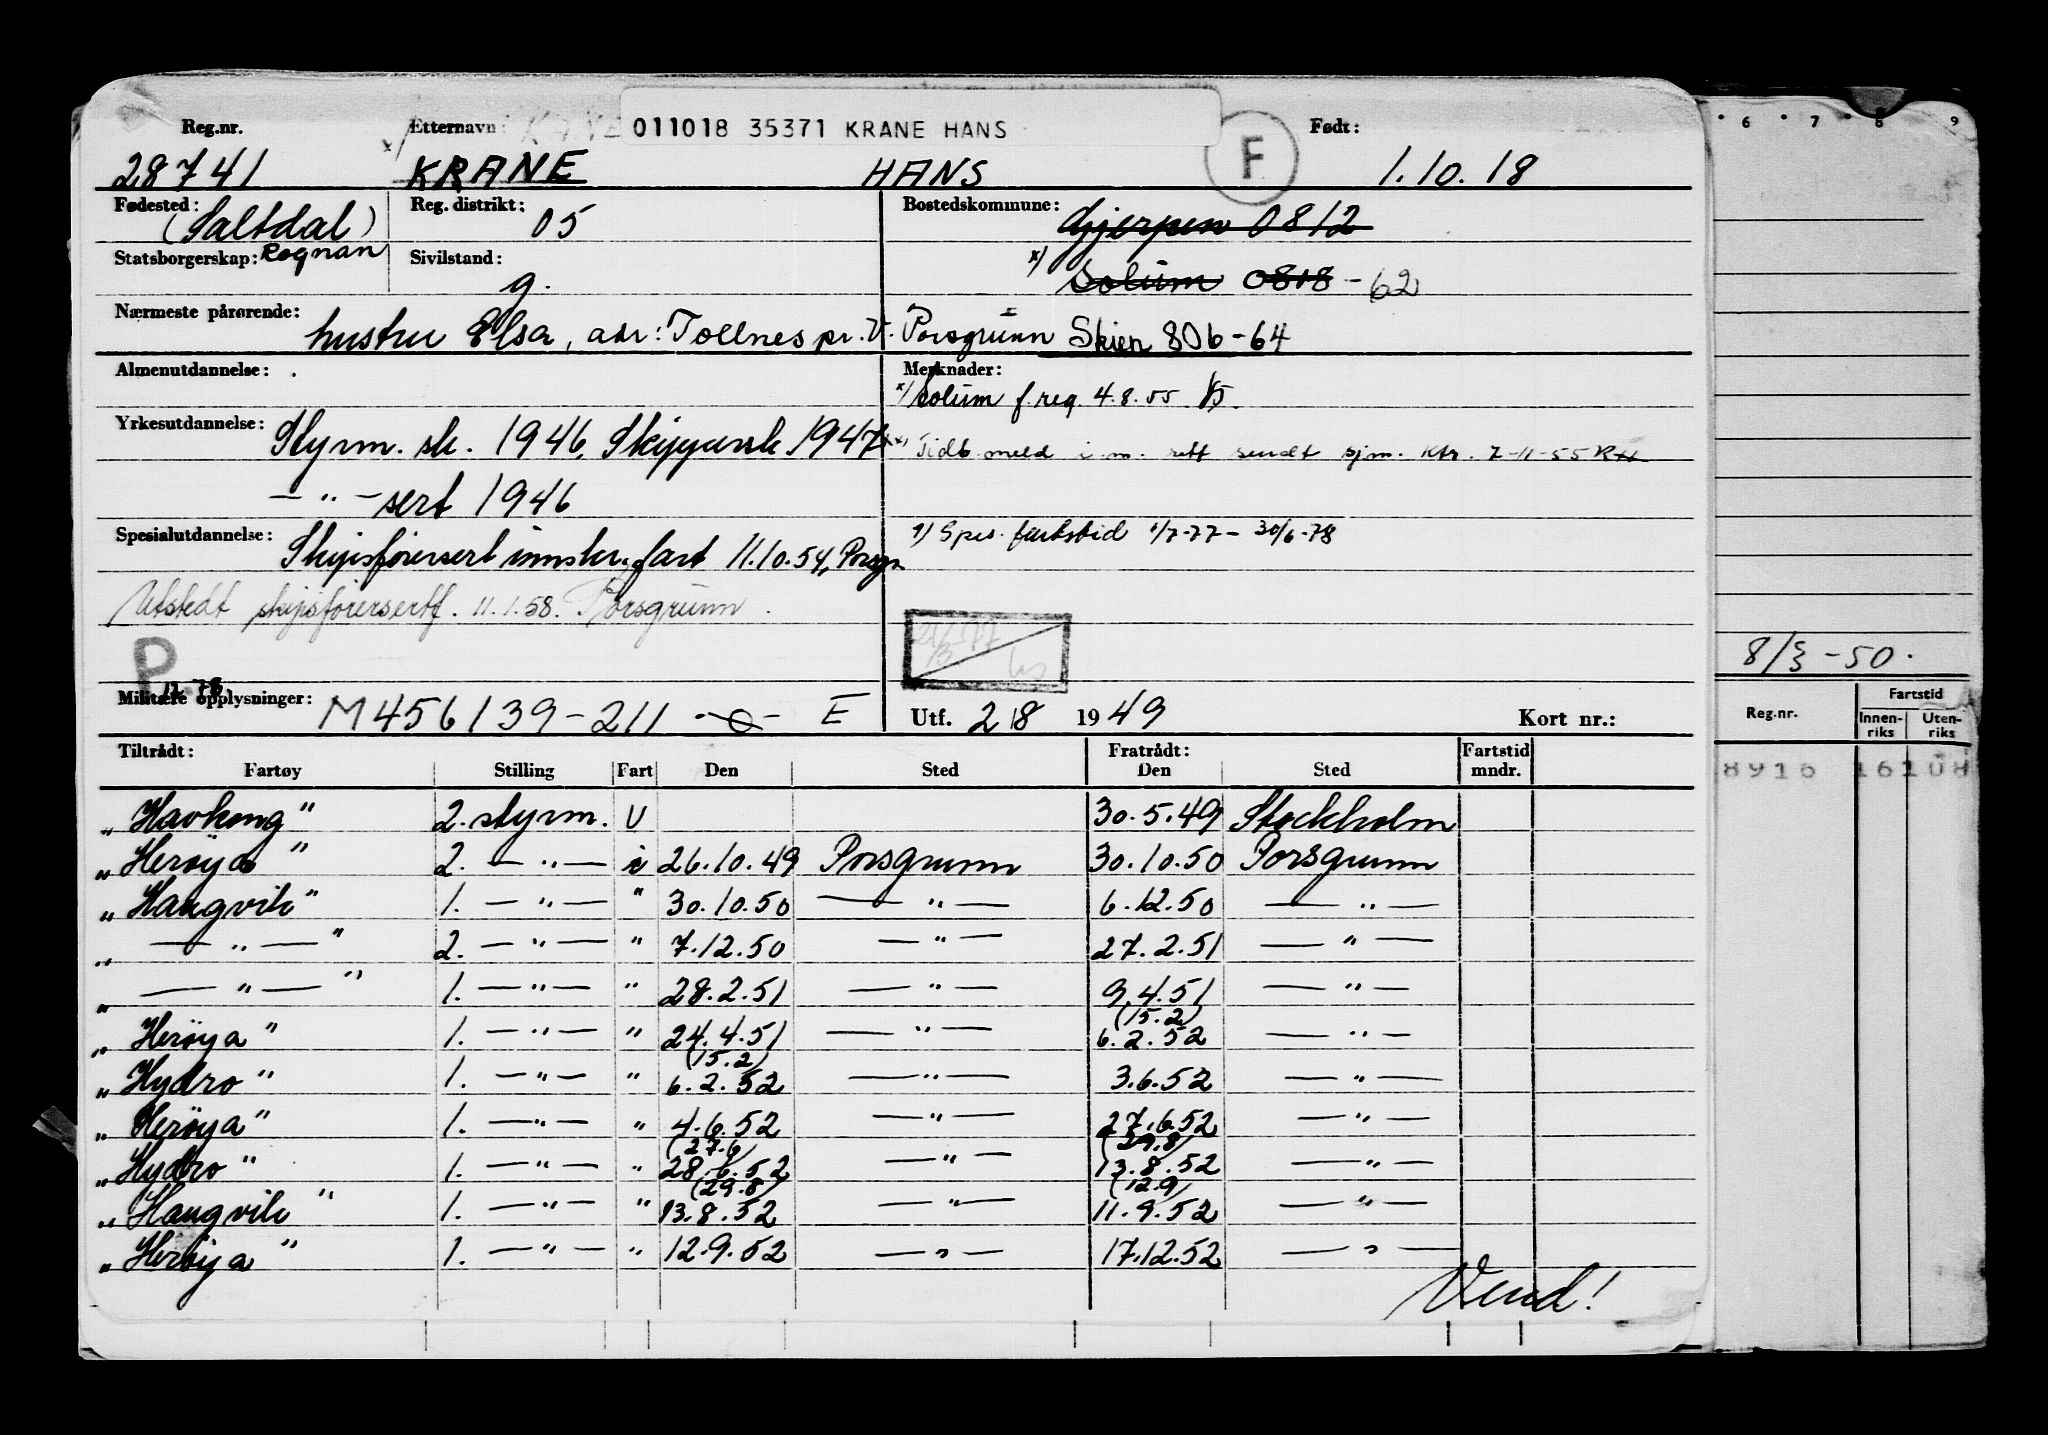 011018 35371 KRANE HANS
Reg.nr. Etternavn: Født:
28741 KRANE HANS F 1.10.18
Fødested: (Saltdal) Reg. distrikt: 05 Bostedskommune: Gjerpen 0812
Statsborgerskap: Rognan Sivilstand: g. x) Solum 0818 - 62
Nærmeste pårørende: hustru Elsa, adr: Tollnes pr. V. Porsgrunn Skien 806-64
Almenutdannelse: Merknader:
x) Solum f. reg. 4.8.55
Yrkesutdannelse: Styrm. sk. 1946, Skippersk. 1947
Tidb. meld i.m. rett sendt sjm. ktr. 7-11-55
— " — sert 1946
Spesialutdannelse: Skipsførersert innskr. fart 11.10.54, Porsgr.
1) Spes. fartstid 1/7-77 - 30/6-78
Utstedt skipsførersertf. 11.1.58. Porsgrunn.
P
12.78
Militære opplysninger: M456139-211 E Utf. 2/8 1949 Kort nr.:
Tiltrådt: Fratrådt: Fartstid
Fartøy Stilling Fart Den Sted Den Sted mndr.
„Havkong" 2. styrm. U 30.5.49 Stockholm
„Herøya" 2. — " — i 26.10.49 Porsgrunn 30.10.50 Porsgrunn
„Haugvik" 1. — " — " 30.10.50 — " — 6.12.50 — " —
„ — " — " 2. — " — " 7.12.50 — " — 27.2.51 — " —
„ — " — " 1. — " — " 28.2.51 — " — 9.4.51 — " —
(15.2)
„Herøya" 1. — " — " 24.4.51 — " — 6.2.52 — " —
(15.2)
„Hydro" 1. — " — " 6.2.52 — " — 3.6.52 — " —
„Herøya" 1. — " — " 4.6.52 — " — 27.6.52 — " —
(27.6) (29.8)
„Hydro" 1. — " — " 28.6.52 — " — 13.8.52 — " —
(29.8) (12.9)
„Haugvik" 1. — " — " 13.8.52 — " — 11.9.52 — " —
„Herøya" 1. — " — " 12.9.52 — " — 17.12.52 — " —
Vend!
6 7 8 9
8/3-50.
Reg.nr. Fartstid
Innen-riks Uten-riks
8916 16108